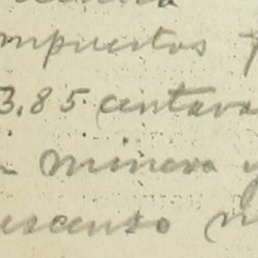 mpuestos
3,85 centavo
minera y
escenso